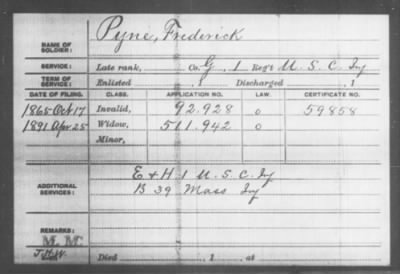 Pyne, Frederick
NAME OF SOLDIER:
SERVICE: Late rank, Co. G, 1 Reg't U. S. C. Iy
TERM OF SERVICE: Enlisted , 1 Discharged , 1
DATE OF FILING. CLASS. APPLICATION NO. LAW. CERTIFICATE NO.
1865 Oct 17 Invalid, 92.928 o 59858
1891 Apr 25 Widow, 511.942 o
Minor,
ADDITIONAL SERVICES: E + H 1 U. S. C. Iy
B 39 Mass Iy
REMARKS:
M. M.
Died , 1 , at